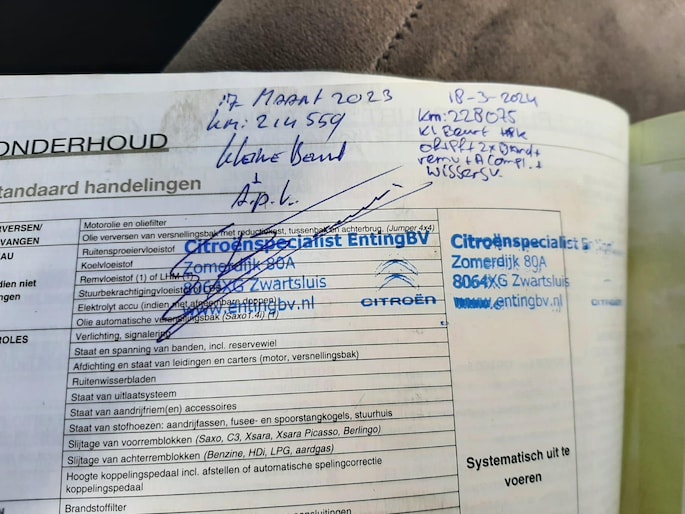 17 MAART 2023
km: 214559
kleine Beurt
+
A.p.k.
18-3-2024
Km: 228075
Kl Beurt
remv +
wissersv.
ONDERHOUD
standaard handelingen
Motorolie en oliefilter
Olie verversen van versnellingsbak met reductiekast, tussenbak en achterbrug. (Jumper 4x4)
Ruitensproeiervloeistof
Koelvloeistof
Remvloeistof (1) of LHM (1)
Stuurbekrachtigingsvloeistof
Elektrolyt accu (indien met afneembare doppen)
Olie automatische versnellingsbak (Saxo1.4i) (1)
Citroënspecialist EntingBV
Zomerdijk 80A
8064XG Zwartsluis
www.entingbv.nl
CITROËN
Citroënspecialist
Zomerdijk 80A
8064XG Zwartsluis
www.entingbv.nl
CITROËN
Verlichting, signalering
Staat en spanning van banden, incl. reservewiel
Afdichting en staat van leidingen en carters (motor, versnellingsbak)
Ruitenwisserbladen
Staat van uitlaatsysteem
Staat van aandrijfriem(en) accessoires
Staat van stofhoezen: aandrijfassen, fusee- en spoorstangkogels, stuurhuis
Slijtage van voorremblokken (Saxo, C3, Xsara, Xsara Picasso, Berlingo)
Slijtage van achterremblokken (Benzine, HDi, LPG, aardgas)
Hoogte koppelingspedaal incl. afstellen of automatische spelingcorrectie
koppelingspedaal
Brandstoffilter
Systematisch uit te
voeren